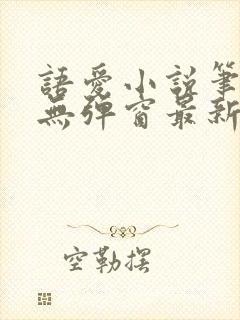 語愛小説筆
無彈窗最新
空勒摆